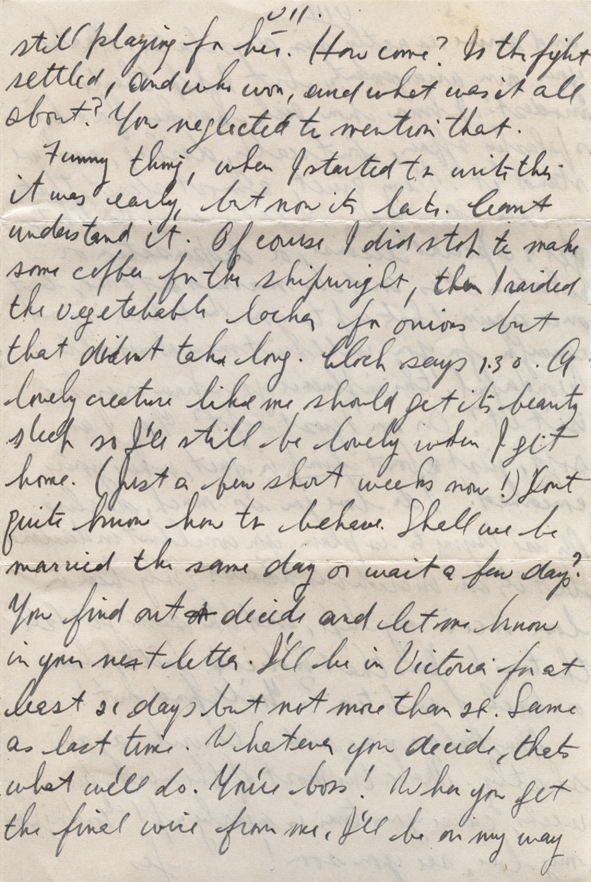 VII.
still playing for her. How come? Is the fight
settled, and who won, and what was it all
about? You neglected to mention that.
Funny thing, when I started to write this
it was early, but now its late. Can't
understand it. Of course I did stop to make
some coffee for the shipwright, then I raided
the vegetabable locker for onions but
that didnt take long. Clock says 1.30. A
lovely creature like me should get its beauty
sleep so I'll still be lovely when I get
home. (Just a few short weeks now!) Dont
quite know how to behave. Shall we be
married the same day or wait a few days?
You find out decide and let me know
in your next letter. I'll be in Victoria for at
least days but not more than. Same
as last time. Whatever you decide, thats
what we'll do. You're boss! When you get
the final wire from me, I'll be on my way